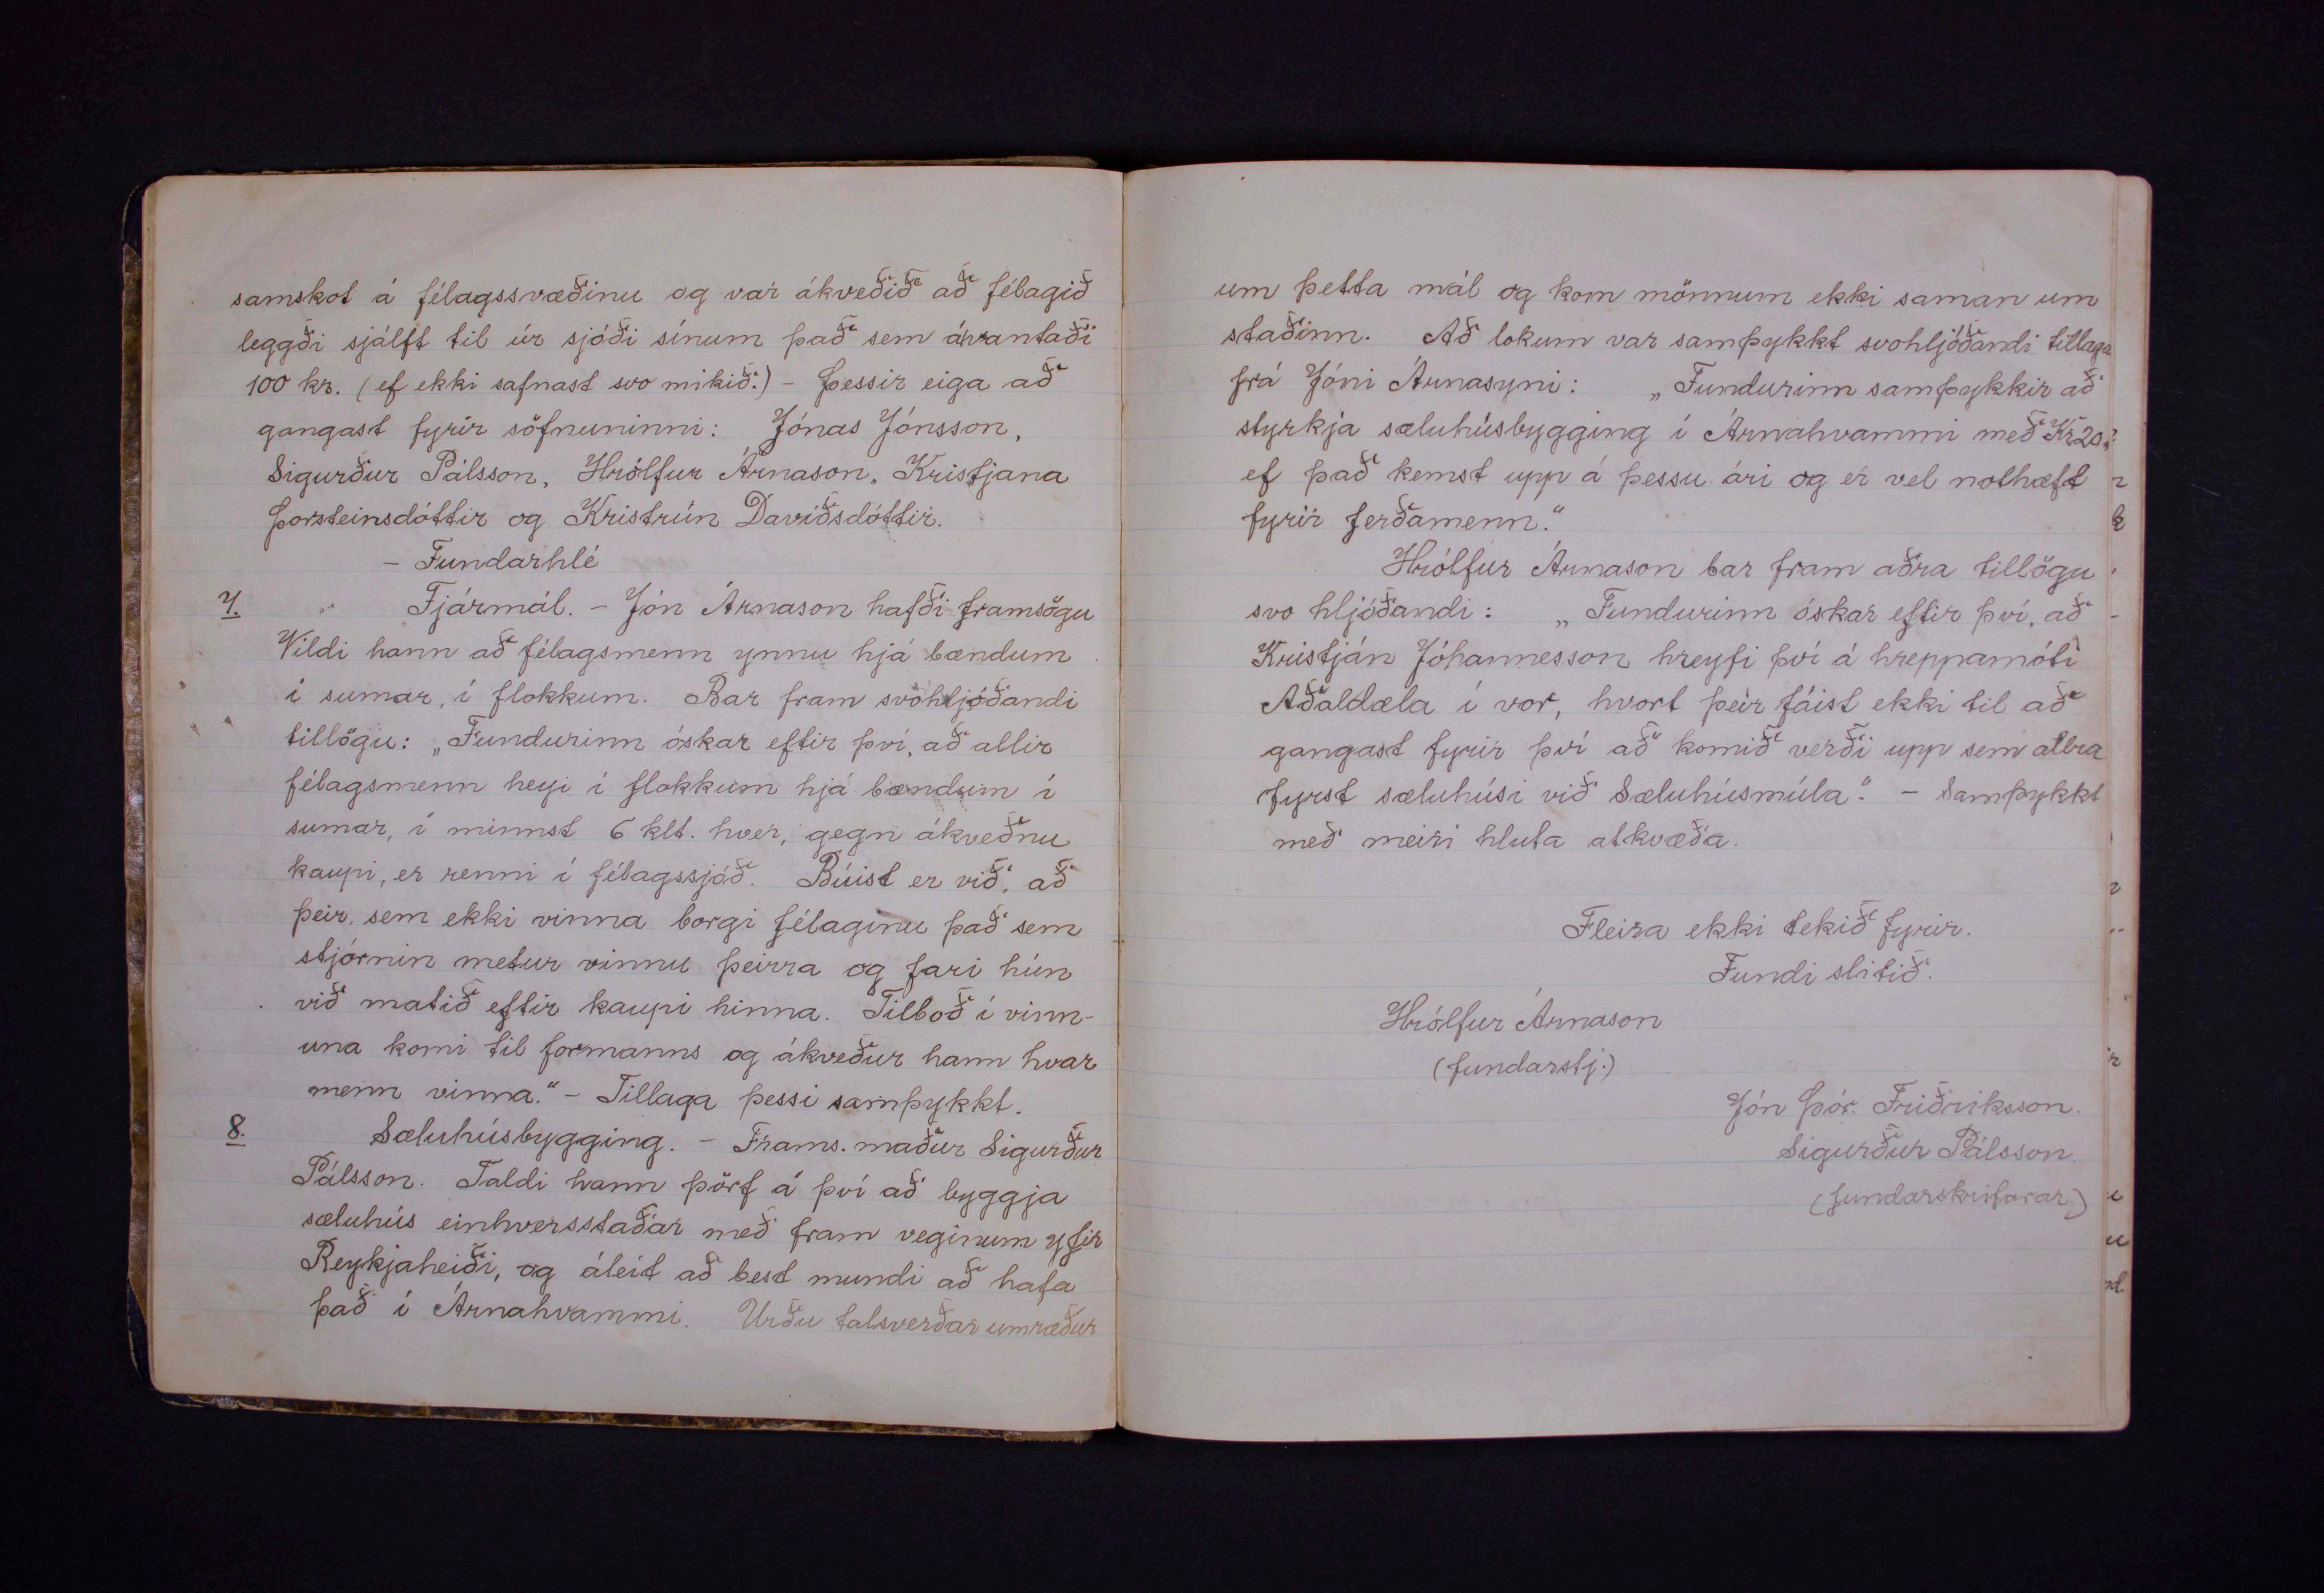 samskot á félagssvæðinu og var ákveðið að félagið
leggði sjálft til úr sjóði sínum það sem ávantaði
100 kr. (ef ekki safnast svo mikið.) - Þessir eiga að
gangast fyrir söfnuninni: Jónas Jónsson,
Sigurður Pálsson, Hrólfur Árnason, Kristjana
Þorsteinsdóttir og Kristrún Davíðsdóttir.
- Fundarhlé
7. Fjármál. - Jón Árnason hafði framsögu
Vildi hann að félagsmenn ynnu hjá bændum
í sumar, í flokkum. Bar fram svohljóðandi
tillögu: „Fundurinn óskar eftir því, að allir
félagsmenn heyi í flokkum hjá bændum í
sumar, í minnst 6 klt. hver, gegn ákveðnu
kaupi, er renni í félagssjóð. Búist er við, að
þeir, sem ekki vinna borgi félaginu það sem
stjórnin metur vinnu þeirra og fari hún
við matið eftir kaupi hinna. Tilboð í vinn-
una komi til formanns og ákveður hann hvar
menn vinna." - Tillaga þessi samþykkt.
8. Sæluhúsbygging. - Frams. maður Sigurður
Pálsson. Taldi hann þörf á því að byggja
sæluhús einhversstaðar með fram veginum yfir
Reykjaheiði, og áleit að best mundi að hafa
það í Árnahvammi. Urðu talsverðar umræður
um þetta mál og kom mönnum ekki saman um
staðinn. Að lokum var samþykkt svohljóðandi tillaga
frá Jóni Árnasyni: „Fundurinn samþykkir að
styrkja sæluhúsbygging í Árnahvammi með Kr 20.
ef það kemst upp á þessu ári og er vel nothæft
fyrir ferðamenn."
Hrólfur Árnason bar fram aðra tillögu
svo hljóðandi: „Fundurinn óskar eftir því, að
Kristján Jóhannesson hreyfi því á hreppamóti
Aðaldæla í vor, hvort þeir fáist ekki til að
gangast fyrir því að komið verði upp sem allra
fyrst sæluhúsi við Sæluhúsmúla." - Samþykkt
með meiri hluta atkvæða.
Fleira ekki tekið fyrir.
Fundi slitið.
Hrólfur Árnason
(fundarstj.)
Jón Þór. Friðriksson.
Sigurður Pálsson.
(fundarskrifarar.)